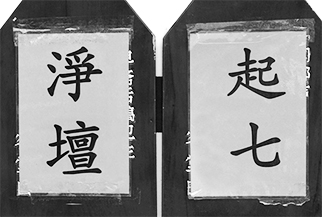 起七
淨壇